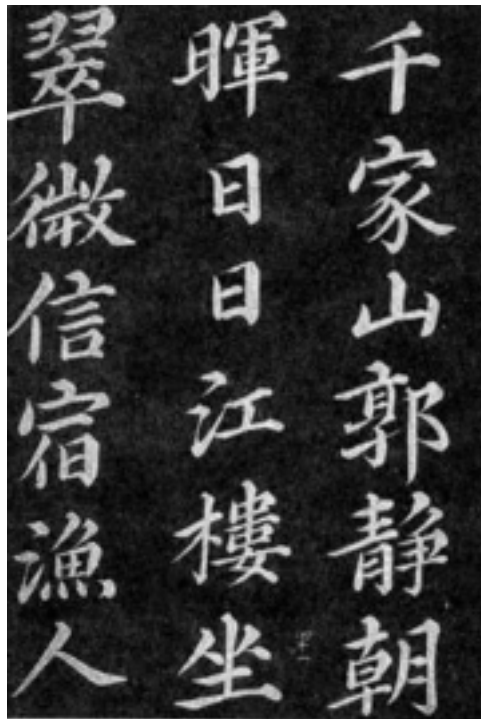 千家山郭静朝
暉日日江樓坐
翠微信宿漁人